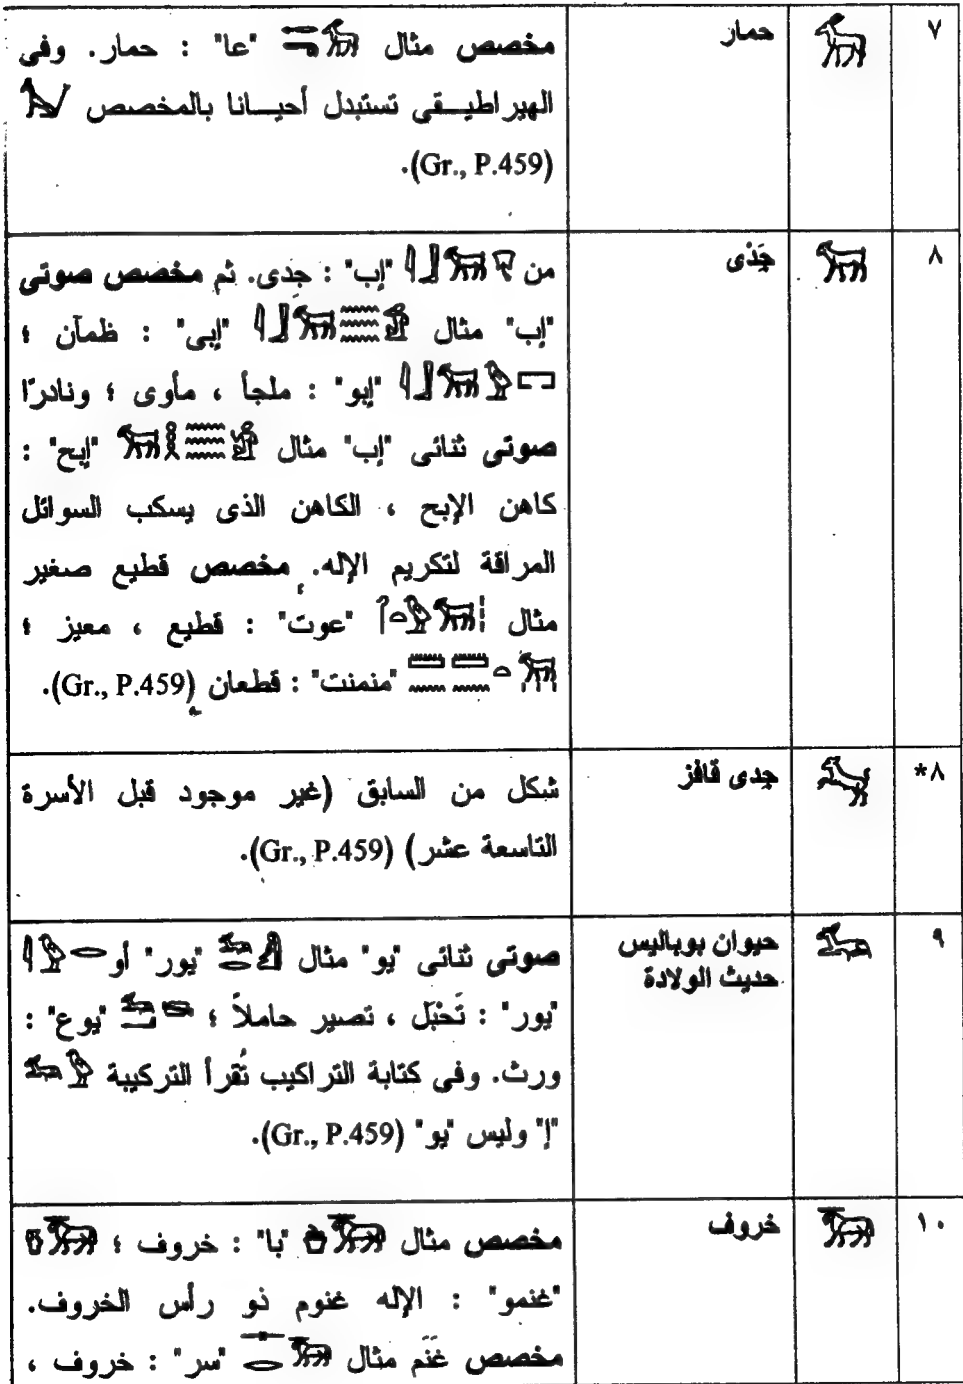 ٧ حمار مخصص مثال "عا" : حمار. وفى
الهيراطيقى تستبدل أحيانا بالمخصص
(Gr., P.459).
٨ جَدْى من "إب" : جِدى. ثم مخصص صوتى
"إب" مثال "إبى" : ظمآن ؛
"إبو" : ملجأ ، مأوى ؛ ونادرًا
صوتى ثنائى "إب" مثال "إبح" :
كاهن الإبح ، الكاهن الذى يسكب السوائل
المراقة لتكريم الإله. مخصص قطيع صغير
مثال "عوت" : قطيع ، معيز ؛
"منمنت" : قطعان (Gr., P.459).
٨* جدى قافز شكل من السابق (غير موجود قبل الأسرة
التاسعة عشر) (Gr., P.459).
٩ حيوان بوباليس صوتى ثنائى "يو" مثال "يور" أو
حديث الولادة "يور" : تَحْبَل ، تصير حاملاً ؛ "يوع" :
ورث. وفى كتابة التراكيب تُقرأ التركيبة
"إ" وليس "يو" (Gr., P.459).
١٠ خروف مخصص مثال "با" : خروف ؛
"غنمو" : الإله غنوم ذو رأس الخروف.
مخصص غَنَم مثال "سر" : خروف ،